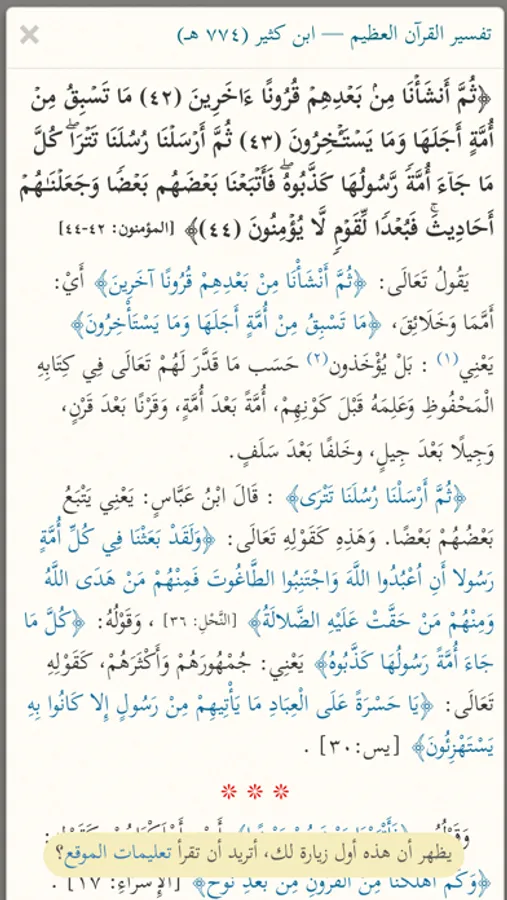 تفسير القرآن العظيم — ابن كثير (٧٧٤ هـ)
﴿ثُمَّ أَنشَأۡنَا مِنۢ بَعۡدِهِمۡ قُرُونًا ءَاخَرِینَ (٤٢) مَا تَسۡبِقُ مِنۡ
أُمَّةٍ أَجَلَهَا وَمَا یَسۡتَـٔۡخِرُونَ (٤٣) ثُمَّ أَرۡسَلۡنَا رُسُلَنَا تَتۡرَاۖ كُلَّ
مَا جَاۤءَ أُمَّةࣰ رَّسُولُهَا كَذَّبُوهُۖ فَأَتۡبَعۡنَا بَعۡضَهُم بَعۡضࣰا وَجَعَلۡنَـٰهُمۡ
أَحَادِیثَۚ فَبُعۡدࣰا لِّقَوۡمࣲ لَّا یُؤۡمِنُونَ (٤٤)﴾ [المؤمنون: ٤٢-٤٤]
يَقُولُ تَعَالَى: ﴿ثُمَّ أَنْشَأْنَا مِنْ بَعْدِهِمْ قُرُونًا آخَرِينَ﴾ أَيْ:
أُمَمًا وَخَلَائِقَ، ﴿مَا تَسْبِقُ مِنْ أُمَّةٍ أَجَلَهَا وَمَا يَسْتَأْخِرُونَ﴾
يَعْنِي(١) : بَلْ يُؤْخَذون(٢) حَسَب مَا قَدَّرَ لَهُمْ تَعَالَى فِي كِتَابِهِ
الْمَحْفُوظِ وَعَلِمَهُ قَبْلَ كَوْنِهِمْ، أُمَّةً بَعْدَ أُمَّةٍ، وَقَرْنًا بَعْدَ قَرْنٍ،
وَجِيلًا بَعْدَ جِيلٍ، وخَلفًا بَعْدَ سَلَفٍ.
﴿ثُمَّ أَرْسَلْنَا رُسُلَنَا تَتْرَى﴾ : قَالَ ابْنُ عَبَّاسٍ: يَعْنِي يَتْبَعُ
بَعْضُهُمْ بَعْضًا. وَهَذِهِ كَقَوْلِهِ تَعَالَى: ﴿وَلَقَدْ بَعَثْنَا فِي كُلِّ أُمَّةٍ
رَسُولا أَنِ اُعْبُدُوا اللَّهَ وَاجْتَنِبُوا الطَّاغُوتَ فَمِنْهُمْ مَنْ هَدَى اللَّهُ
وَمِنْهُمْ مَنْ حَقَّتْ عَلَيْهِ الضَّلالَةُ﴾ [النَّحْلِ: ٣٦] ، وَقَوْلُهُ: ﴿كُلَّ مَا
جَاءَ أُمَّةً رَسُولُهَا كَذَّبُوهُ﴾ يَعْنِي: جُمْهُورَهُمْ وَأَكْثَرَهُمْ، كَقَوْلِهِ
تَعَالَى: ﴿يَا حَسْرَةً عَلَى الْعِبَادِ مَا يَأْتِيهِمْ مِنْ رَسُولٍ إِلا كَانُوا بِهِ
يَسْتَهْزِئُونَ﴾ [يس:٣٠] .
يظهر أن هذه أول زيارة لك، أتريد أن تقرأ تعليمات الموقع؟
﴿وَكَمْ أَهْلَكْنَا مِنَ الْقُرُونِ مِنْ بَعْدِ نُوحٍ﴾ [الإِسْرَاءِ: ١٧] .